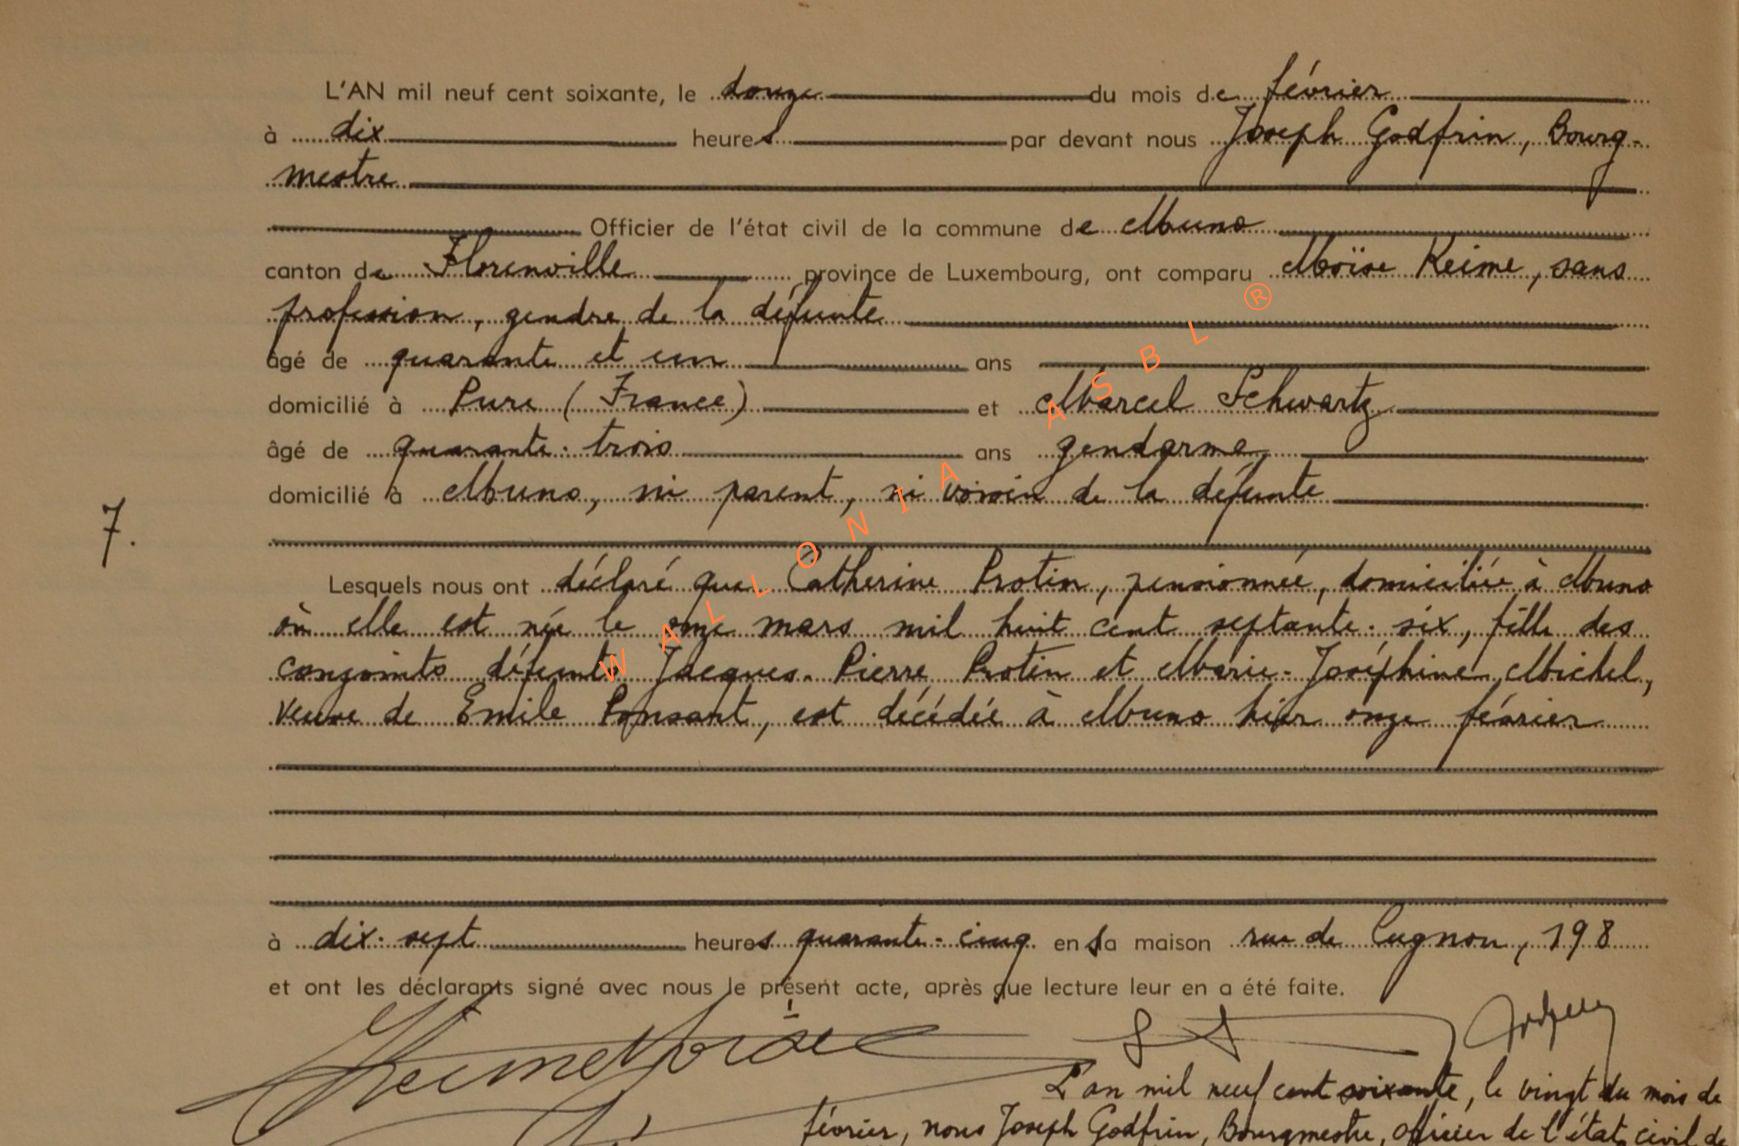 L'AN mil neuf cent soixante, le douze du mois de février
à dix heures par devant nous Joseph Godfrin, Bourg-
mestre
Officier de l'état civil de la commune de Muno
canton de Florenville province de Luxembourg, ont comparu Moïse Keime, sans
profession, gendre de la défunte
âgé de quarante et un ans
domicilié à Pure (France) et Marcel Schwartz
âgé de quarante-trois ans gendarme
domicilié à Muno, ni parent, ni voisin de la défunte
7.
Lesquels nous ont déclaré que Catherine Protin, pensionnée, domiciliée à Muno
où elle est née le onze mars mil huit cent septante-six, fille des
conjoints défunts Jacques-Pierre Protin et Marie-Joséphine Michel,
veuve de Emile Ponsart, est décédée à Muno hier onze février
à dix-sept heures quarante-cinq en sa maison rue de Cugnon, 198
et ont les déclarants signé avec nous le présent acte, après que lecture leur en a été faite.
Keime Moïse
L'an mil neuf cent soixante, le vingt du mois de
février, nous Joseph Godfrin, Bourgmestre, officier de l'état civil de
WALLONIA ASBL ®